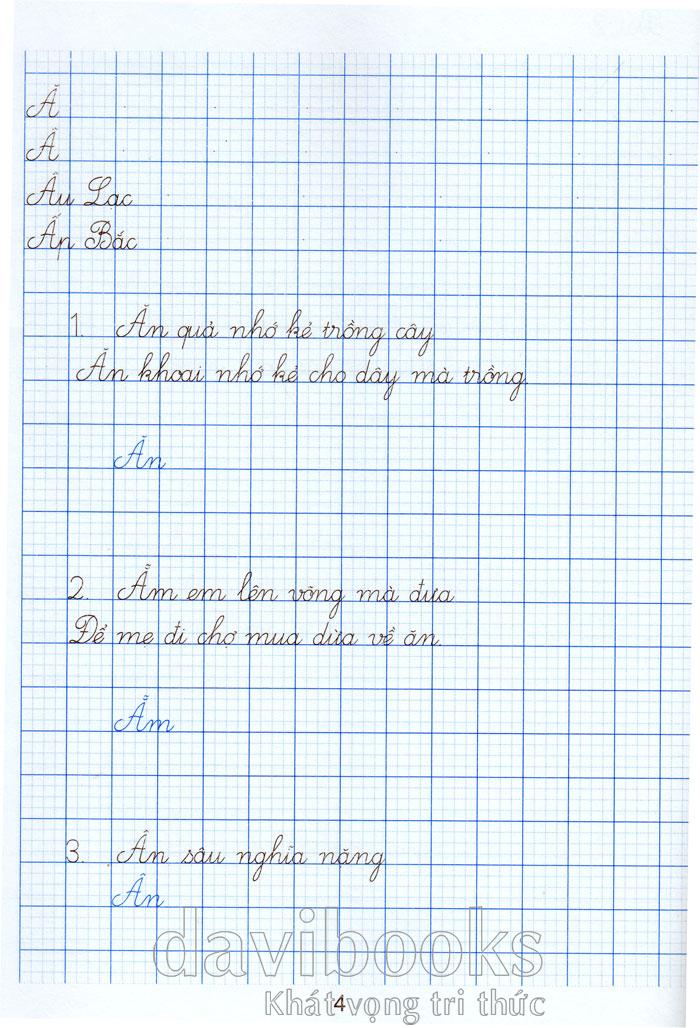 Ă
Â
Âu Lạc
Ấp Bắc
1. Ăn quả nhớ kẻ trồng cây
Ăn khoai nhớ kẻ cho dây mà trồng.
Ăn
2. Ẵm em lên võng mà đưa
Để mẹ đi chợ mua dừa về ăn.
Ẵm
3. Ân sâu nghĩa nặng
Ân
davibooks
Khát vọng tri thức
4